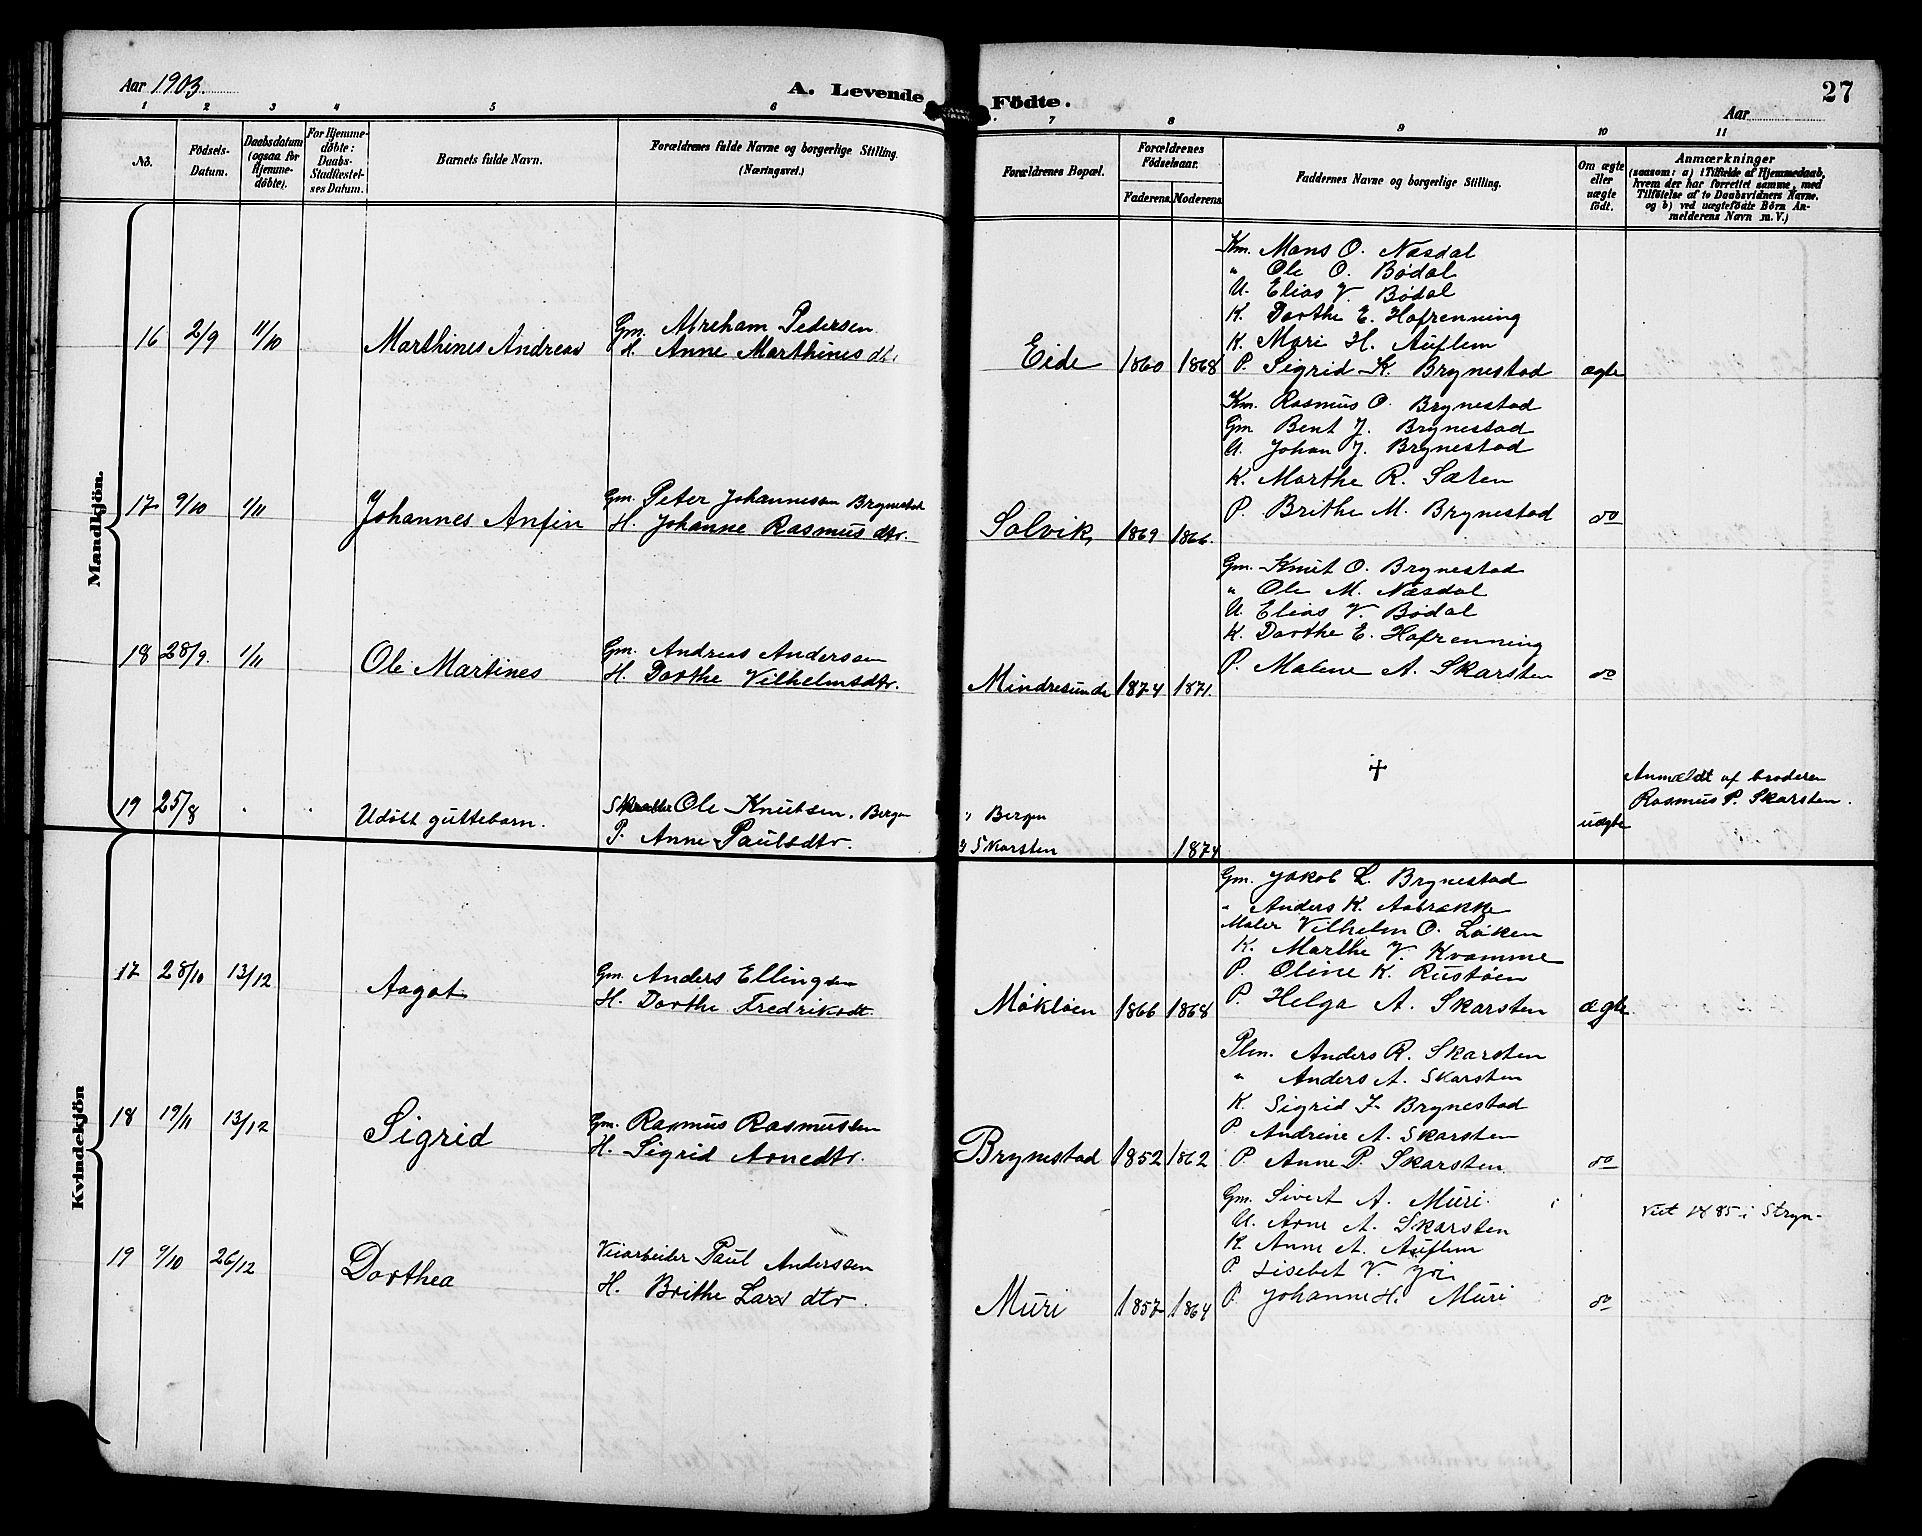 Aar 1903.
A. Levende Födte.
27
Aar
1 2 3 4 5 6 7 8 9 10 11
No. Födsels-Datum. Daabsdatum (ogsaa for Hjemme-döbte). For Hjemme-döbte: Daabs-Stadfæstel-ses Datum. Barnets fulde Navn. Forældrenes fulde Navne og borgerlige Stilling. (Næringsvei.) Forældrenes Bopæl. Forældrenes Födselsaar. Faderens. Moderens. Faddernes Navne og borgerlige Stilling. Om ægte eller uægte födt. Anmærkninger (saasom: a) i Tilfælde af Hjemmedaab, hvem der har forrettet samme, med Tilföielse af to Daabsvidners Navne. og b) ved uægtefödte Börn An-melderens Navn m. V.)
Mandkjön.
Km. Mons O. Næsdal
" Ole O. Bødal
U. Elias V. Bødal
K. Dorthe E. Hafrenning
K. Mari H. Auflem
16 2/9 11/10 Marthines Andreas Gm. Abreham Pedersen
H. Anne Marthinesdtr. Eide 1860 1868 P. Sigrid K. Brynestad ægte
Km. Rasmus O. Brynestad
Gm Bent J. Brynestad
U. Johan J. Brynestad
K. Marthe R. Sæten
17 9/10 1/11 Johannes Anfin Gm. Peter Johannesen Brynestad
H. Johanne Rasmusdtr. Solvik 1869 1866. P. Brithe M. Brynestad do
Gm. Knut O. Brynestad
" Ole M. Næsdal
U. Elias V. Bødal
K. Dorthe E. Hafrenning
18 28/9. 1/11 Ole Martines Gm. Andreas Anderssen
H. Dorthe Vilhelmsdtr. Mindresunde 1874 1871. P. Malene A. Skarsten do
19 25/8 " " Udöbt guttebarn. Skrædder Ole Knutsen, Bergen " Bergen † uægte Anmældt af broderen
Rasmus P. Skarsten.
P. Anne Paulsdtr. " Skarsten 1874
Kvindekjön
Gm. Jakob L. Brynestad
" Anders K. Aabrække
Maler Vilhelm O. Løken
K. Marthe V. Kvamme
P. Oline K. Rustøen
17 28/10 13/12 Aagot Gm. Anders Ellingsen
H. Dorthe Fredriksdt. Mökløen 1866 1868 P. Helga A. Skarsten ægte
Plm. Anders R. Skarsten
" Anders A. Skarsten
K. Sigrid J. Brynestad
P. Andrine A. Skarsten
18 19/11 13/12 Sigrid Gm. Rasmus Rasmussen
H. Sigrid Arnedtr. Brynestad 1852 1862 P. Anne P. Skarsten do
Gm. Sivert A. Muri
U. Arne A. Skarsten
K. Anne A. Auflem
P. Lisebet V. Yri
19 9/10 26/12 Dorthea Veiarbeider Paul Anderssen
H. Brithe Larsdtr. Muri 1857 1864 P. Johanne H. Muri do viet 1885 i Stryn.